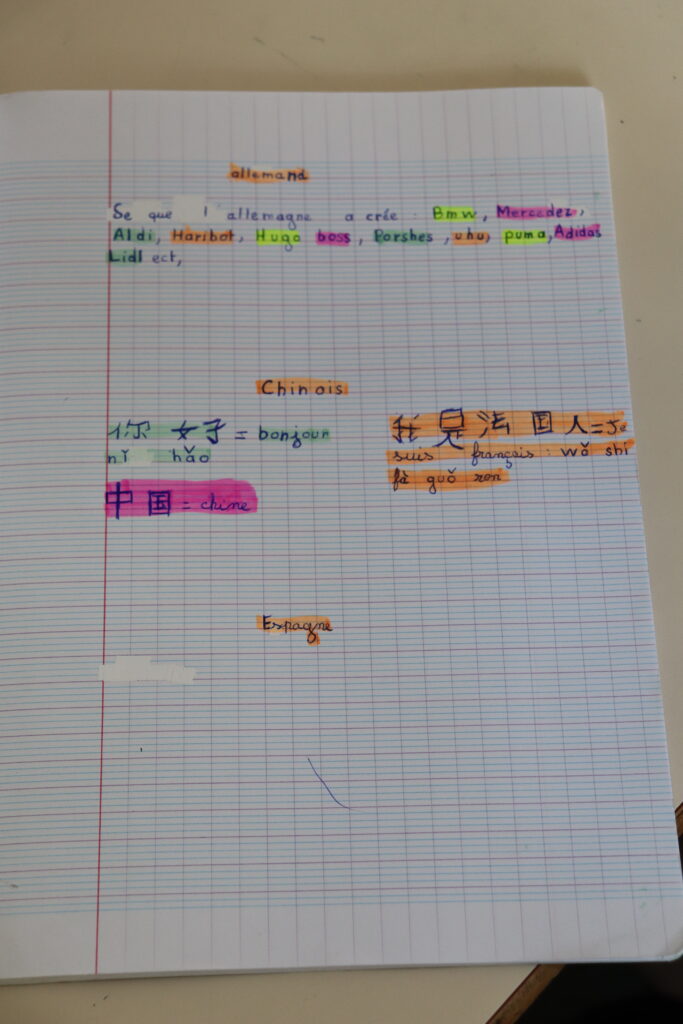 allemand
Se que l'allemagne a crée : Bmw, Mercedez,
Aldi, Haribot, Hugo boss, Porshes, uhu, puma, Adidas
Lidl ect,
Chinois
你 好 = bonjour
nǐ hǎo
中 国 = chine
我 是 法 国 人 = Je
suis français : wǒ shi
fà guǒ ren
Espagne